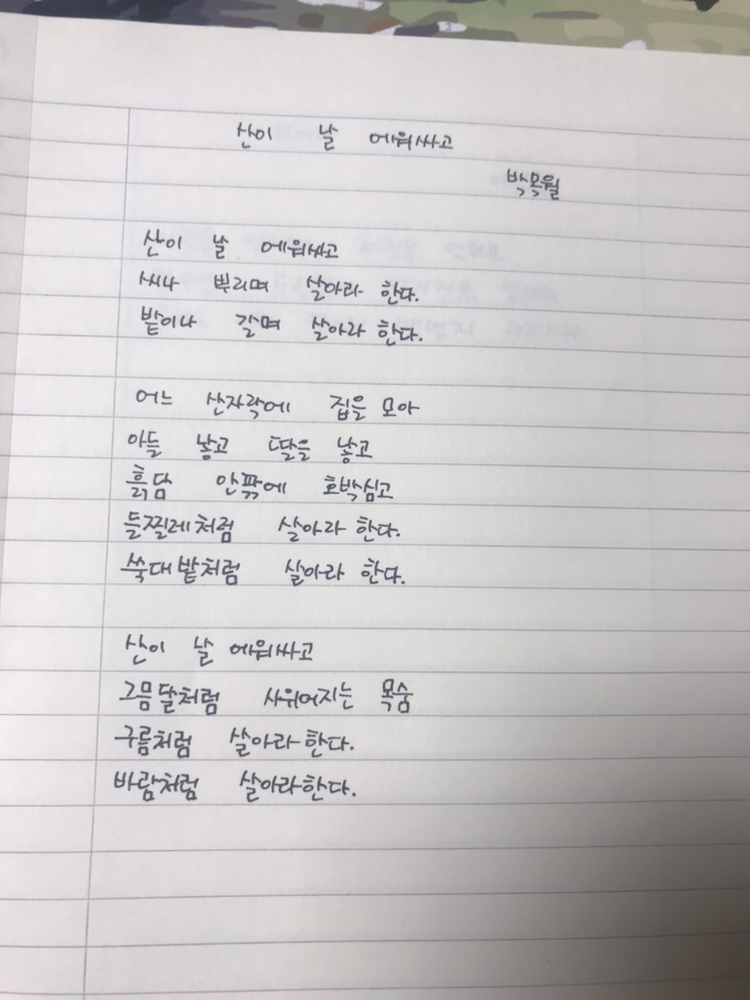 산이 날 에워싸고
박목월
산이 날 에워싸고
씨나 뿌리며 살아라 한다.
밭이나 갈며 살아라 한다.
어느 산자락에 집을 모아
아들 낳고 딸을 낳고
흙담 안팎에 호박심고
들찔레처럼 살아라 한다.
쑥대밭처럼 살아라 한다.
산이 날 에워싸고
그믐달처럼 사위어지는 목숨
구름처럼 살아라 한다.
바람처럼 살아라 한다.